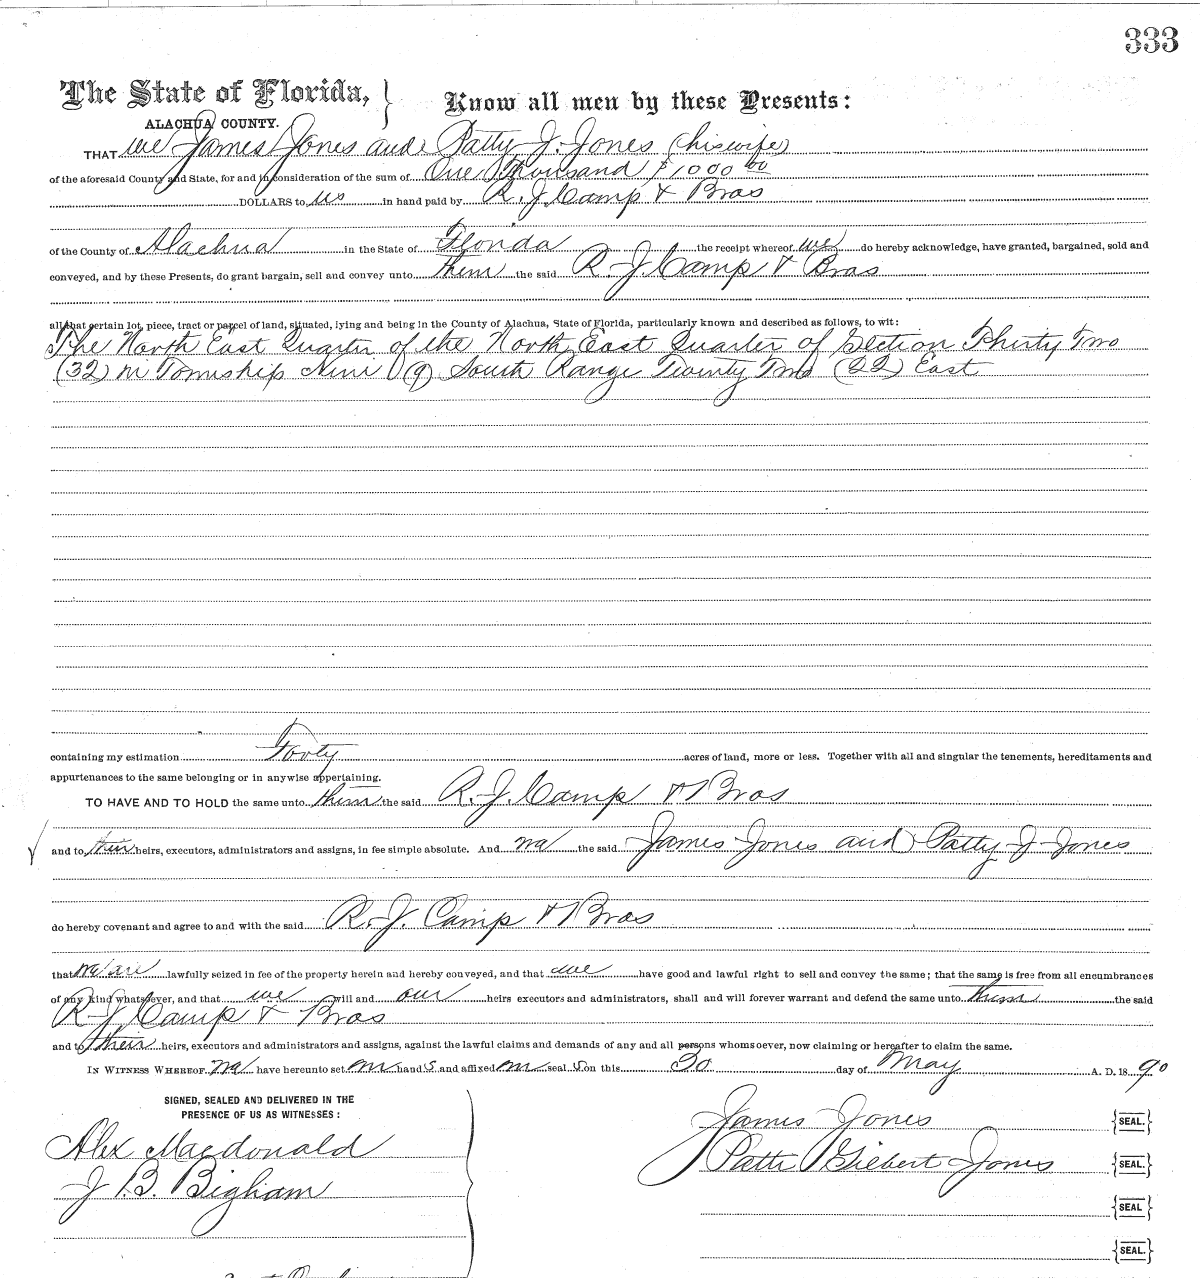 333
The State of Florida,
ALACHUA COUNTY.
Know all men by these Presents:
THAT we James Jones and Patty J. Jones (his wife)
of the aforesaid County and State, for and in consideration of the sum of One Thousand $1000 00
DOLLARS to us in hand paid by R. J. Camp & Bros
of the County of Alachua in the State of Florida the receipt whereof we do hereby acknowledge, have granted, bargained, sold and
conveyed, and by these Presents, do grant bargain, sell and convey unto them the said R. J. Camp & Bros
all that certain lot, piece, tract or parcel of land, situated, lying and being in the County of Alachua, State of Florida, particularly known and described as follows, to wit:
The North East Quarter of the North East Quarter of Section Thirty Two
(32) in Township Nine (9) South Range Twenty Two (22) East
containing my estimation Forty acres of land, more or less. Together with all and singular the tenements, hereditaments and
appurtenances to the same belonging or in anywise appertaining.
TO HAVE AND TO HOLD the same unto them the said R. J. Camp & Bros
and to their heirs, executors, administrators and assigns, in fee simple absolute. And we the said James Jones and Patty J Jones
do hereby covenant and agree to and with the said R. J. Camp & Bros
that we are lawfully seized in fee of the property herein and hereby conveyed, and that we have good and lawful right to sell and convey the same; that the same is free from all encumbrances
of any kind whatsoever, and that we will and our heirs executors and administrators, shall and will forever warrant and defend the same unto them the said
R. J. Camp & Bros
and to their heirs, executors and administrators and assigns, against the lawful claims and demands of any and all persons whomsoever, now claiming or hereafter to claim the same.
IN WITNESS WHEREOF we have hereunto set our hand s and affixed our seal s on this 30 day of May A. D. 18 90
SIGNED, SEALED AND DELIVERED IN THE
PRESENCE OF US AS WITNESSES:
Alex Macdonald
J. B. Bigham
James Jones {SEAL.}
Patti Gilbert Jones {SEAL.}
{SEAL}
{SEAL.}